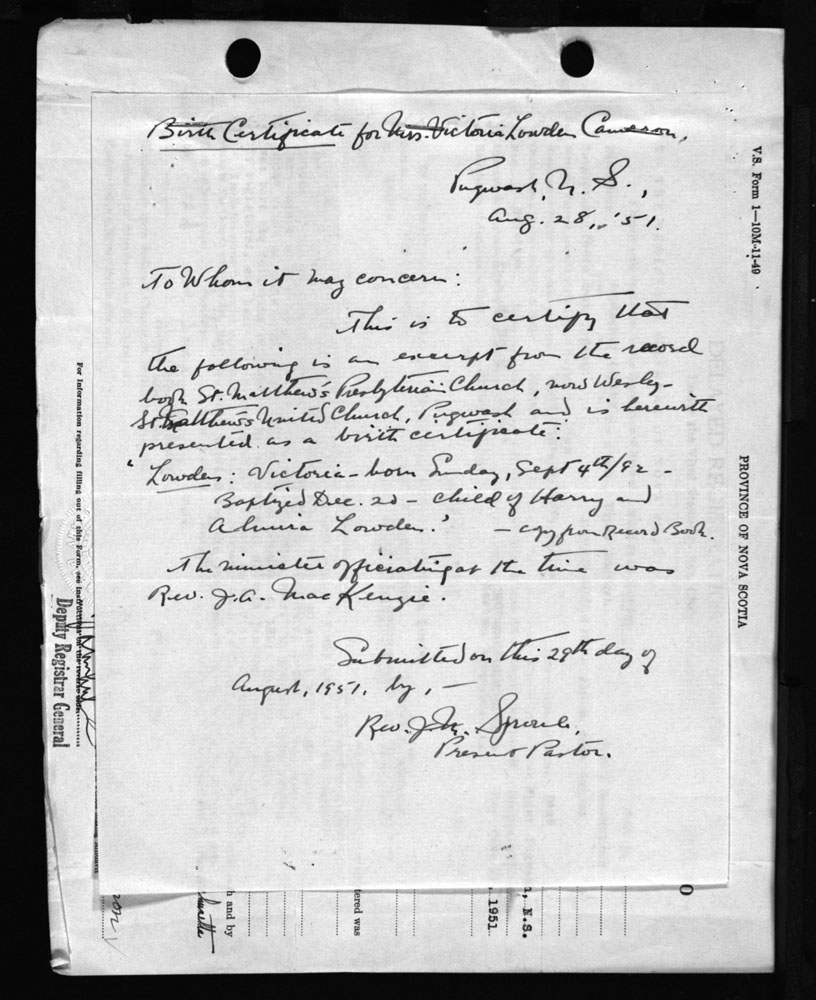 Birth Certificate for Mrs. Victoria Lowden Cameron.
Pugwash, N. S.,
Aug. 28,, '51.
To Whom it may concern:
This is to certify that
the following is an excerpt from the record
book St. Matthew's Presbyterian Church, now Wesley-
St. Matthew's United Church, Pugwash and is herewith
presented as a birth certificate:
"Lowden: Victoria - born Sunday, Sept 4th/92 -
Baptized Dec. 20 - child of Harry and
Almira Lowden." - copy from Record Book.
The minister officiating at the time was
Rev. J. A. MacKenzie.
Submitted on this 29th day of
August, 1951, by, -
Rev. J. M. Sproule,
Present Pastor.
V.S. Form 1—10M-11-49
PROVINCE OF NOVA SCOTIA
For information regarding filling out of this Form, see
Deputy Registrar General
h and by
tered was
, 1951
, N.S.
O